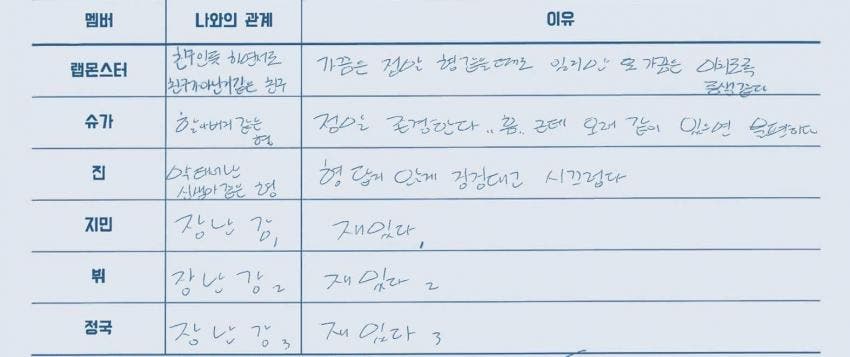 멤버 나와의 관계 이유
랩몬스터 친구인듯 하면서도 가끔은 정말 형 같을때도 있지만 또 가끔은 이토록
친구가 아닌거같은 친구 동생같다
슈가 할아버지 같은 정말 존경한다.. 흠.. 근데 오래 같이 있으면 불편하다
형
진 막 태어난 형 답지 않게 징징대고 시끄럽다
신생아 같은 형
지민 장난감1 재밌다1
뷔 장난감2 재밌다2
정국 장난감3 재밌다3